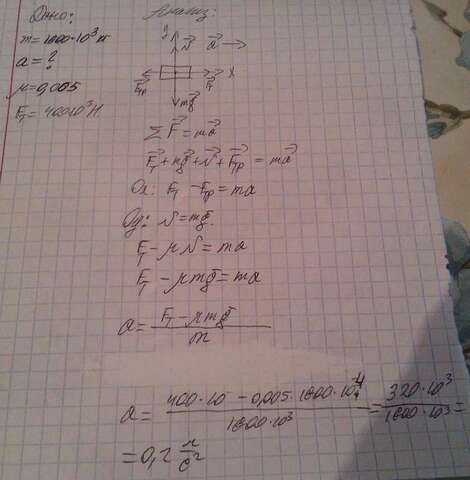 Дано:
m=1600·10³ кг
a=?
μ=0,005
Fт=400·10³ Н
Анализ:
y
N a
Fтр Fт X
mg
ΣF=ma
Fт+mg+N+Fтр=ma
Ox: Fт-Fтр=ma
Oy: N=mg.
Fт-μN=ma
Fт-μmg=ma
a=Fт-μmg/m
a=400·10-0,005·1600·10⁴/1600·10³=320·10³/1600·10³=
=0,2 м/с²